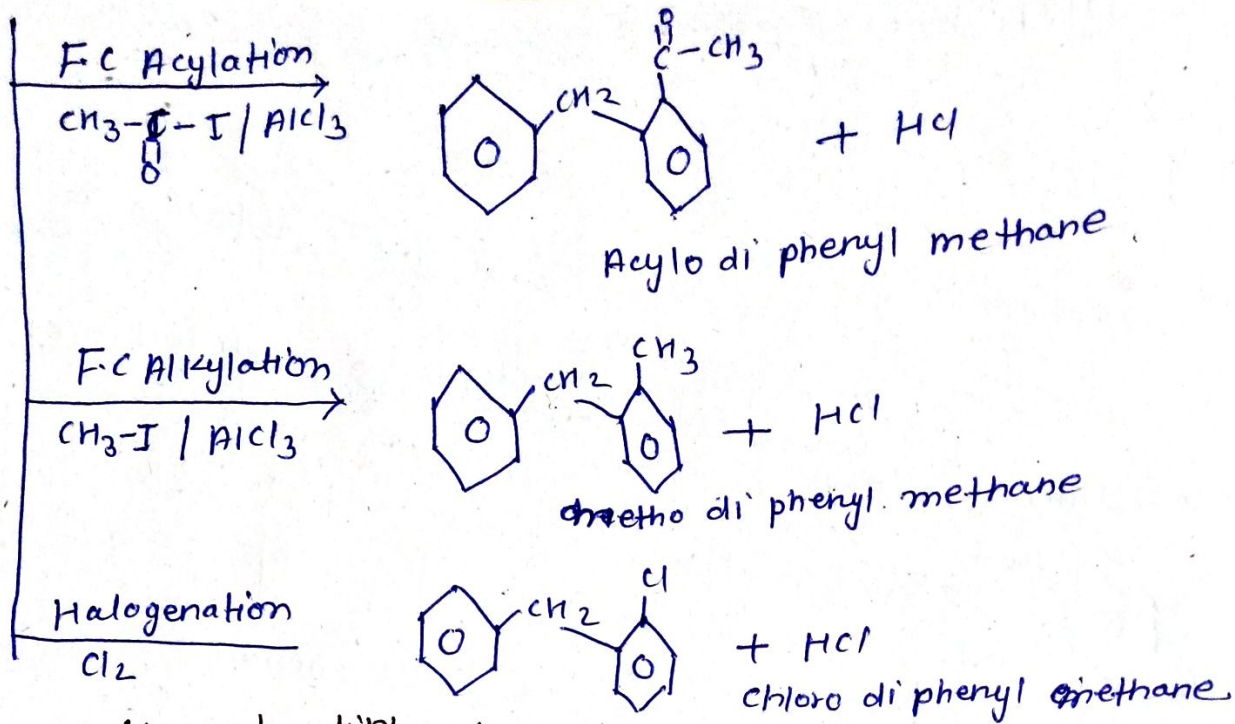 F.C Acylation
CH3-C-I / AlCl3
O
CH2
O
C-CH3
O
O
+ HCl
Acylo di phenyl methane
F.C Alkylation
CH3-I / AlCl3
CH2
CH3
O
O
+ HCl
metho di phenyl methane
Halogenation
Cl2
CH2
Cl
O
O
+ HCl
chloro di phenyl methane